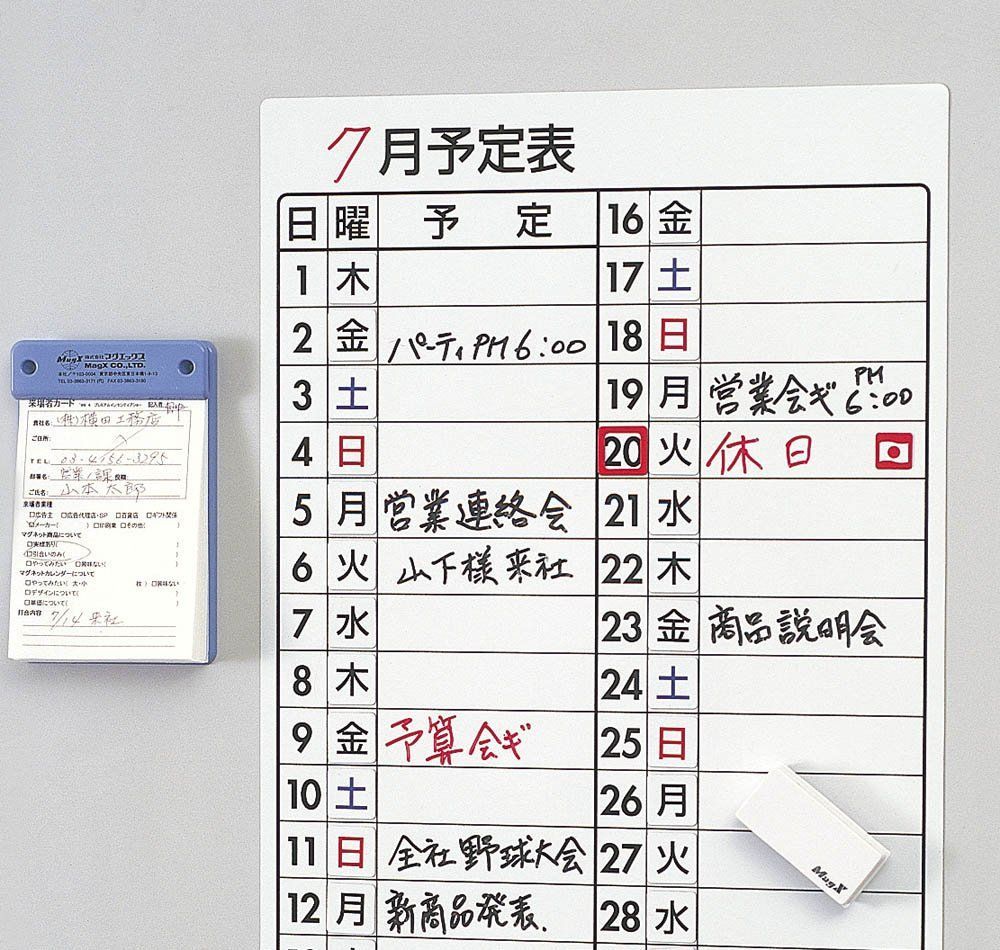 7月予定表
日 曜 予 定
1 木
2 金 パーティPM6:00
3 土
4 日
5 月 営業連絡会
6 火 山下様来社
7 水
8 木
9 金 予算会ギ
10 土
11 日 全社野球大会
12 月 新商品発表.
16 金
17 土
18 日
19 月 営業会ギ PM 6:00
20 火 休日
21 水
22 木
23 金 商品説明会
24 土
25 日
26 月
27 火
28 水
MagX
MagX 株式会社マグエックス
MagX CO.,LTD.
本社/〒103-0004 東京都中央区東日本橋1-8-13
TEL 03-3863-3171 (代) FAX 03-3863-3180
来場者カード
記入者
貴社名: (株)横田工務店
ご住所:
TEL: 03-4156-3295
部署名: 営業1課 役職:
ご氏名: 山本太郎
来場者業種
□広告主 □広告代理店・SP □百貨店 □ギフト関係
□メーカー( ) □印刷業 □その他( )
マグネット商品について
□実績あり( )
□引合いのみ( )
□やってみたい □興味ない( )
マグネットカレンダーについて
□やってみたい( 大・小 枚 ) □興味ない
□デザインについて( )
□単価について( )
打合内容 7/14 来社